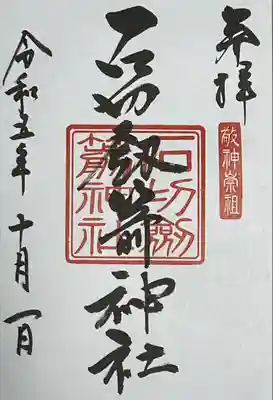 奉拝
敬神崇祖
石切劔箭神社
石切劔
箭神社
令和五年十月一日